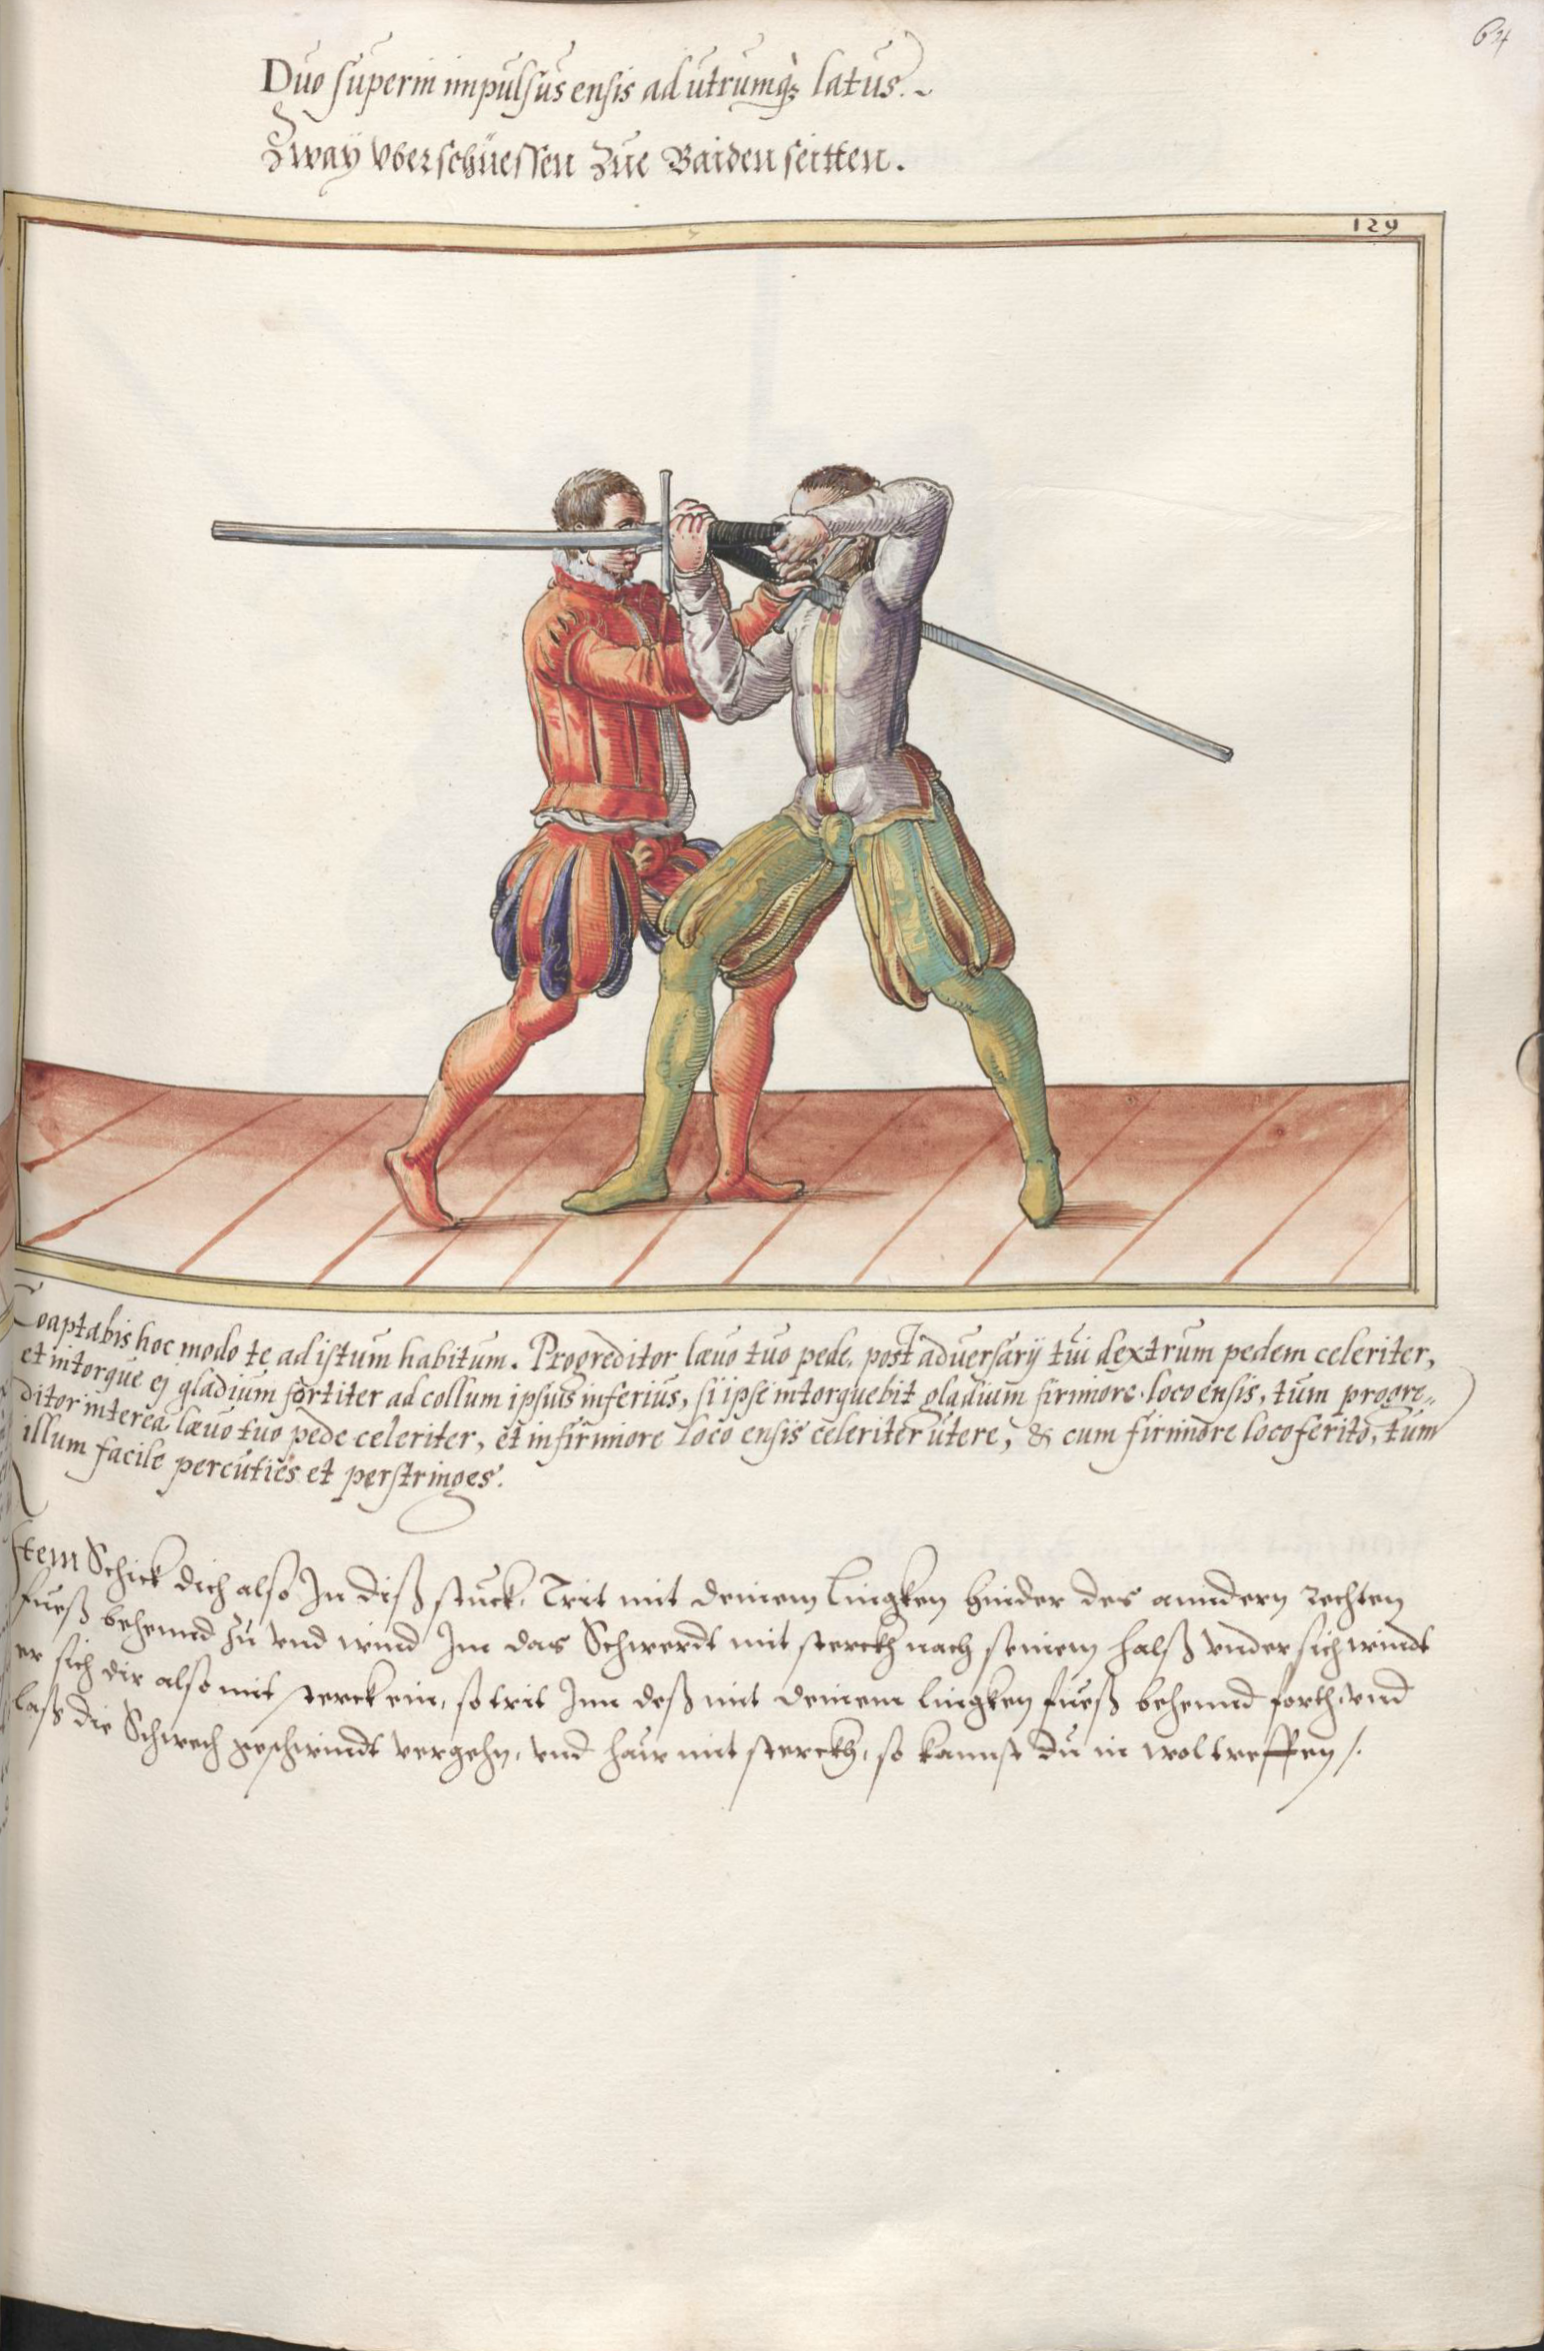 64
Duo superin impulsus ensis ad utrumq₃ latus.~
Zwaÿ vberschüessen Zue Baiden seitten.
129
Coaptabis hoc modo te ad istum habitum. Progreditor læuo tuo pede, post aduersarij tui dextrum pedem celeriter,
et intorque ej gladium fortiter ad collum ipsius inferius, si ipse intorquebit gladium firmiore loco ensis, tum progre„
ditor interea læuo tuo pede celeriter, et infirmiore loco ensis celeriter utere, & cum firmiore loco ferito, tum
illum facile percuties et perstringes.
Item Schick dich also In diß stuck. Trit mit deinem lingken hinder des anndern rechten
fueß behennd zu vnd wind Im das Schwerdt mit sterckh nach seinem halß vndersich windt
er sich dir also mit sterck ein, so trit Inn deß mit deinem lingken fueß behennd forth, vnd
laß die Schwech geschwindt vergehn, vnd haw mit sterckh, so kannst du in wol treffen /.